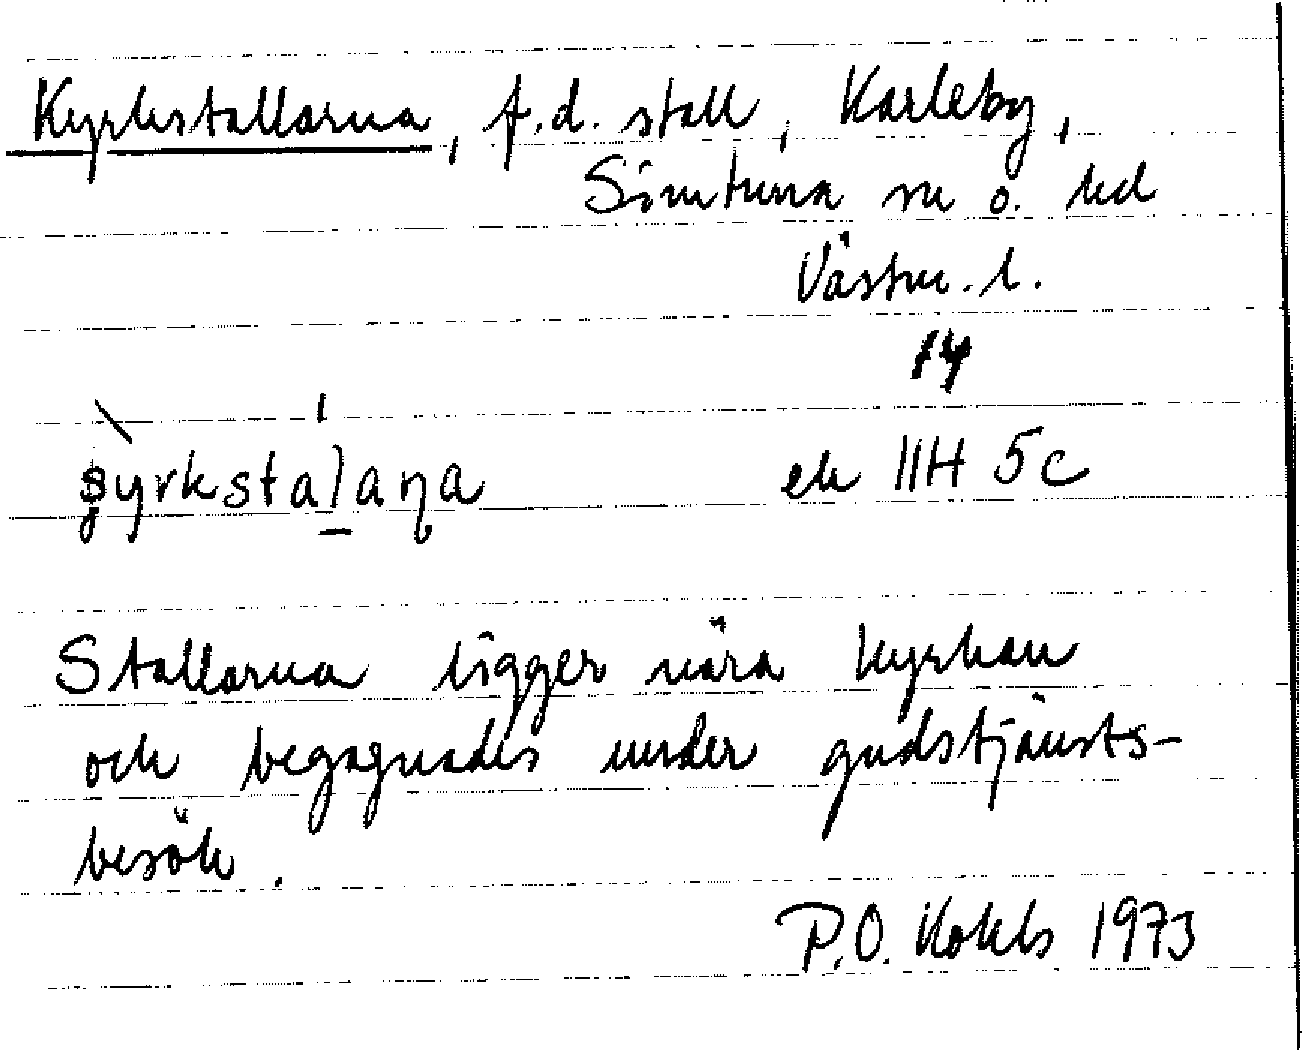 Kyrkstallarna, f.d. stall, Karleby,
Simtuna sn o. hd
Västm. l.
14
ek 11H 5c
Stallarna ligger nära kyrkan
och begagnades under gudstjänsts-
besök.
P.O. 1973